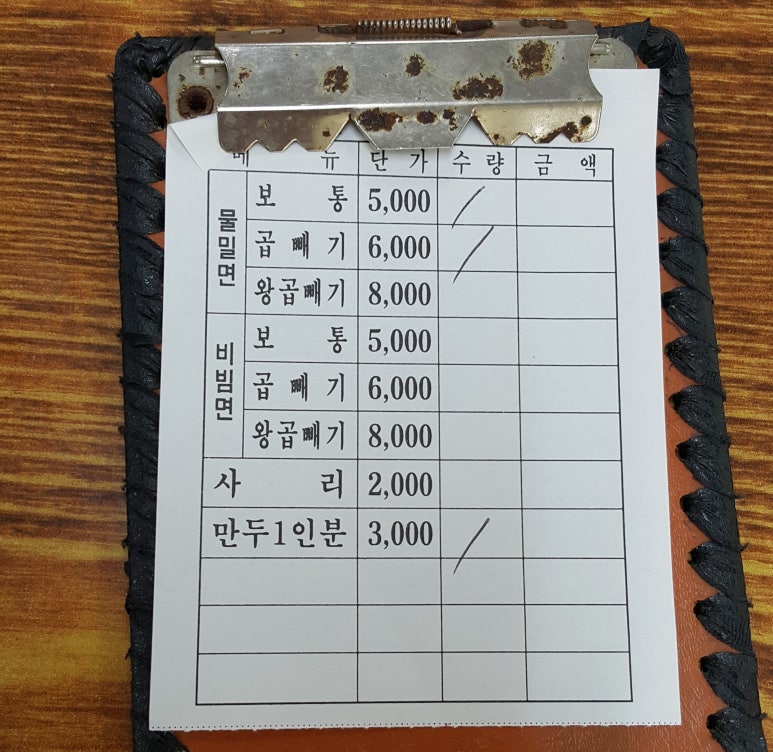 메 뉴 단 가 수 량 금 액
물밀면 보 통 5,000 /
곱 빼 기 6,000 /
왕곱빼기 8,000
비빔면 보 통 5,000
곱 빼 기 6,000
왕곱빼기 8,000
사 리 2,000
만두1인분 3,000 /